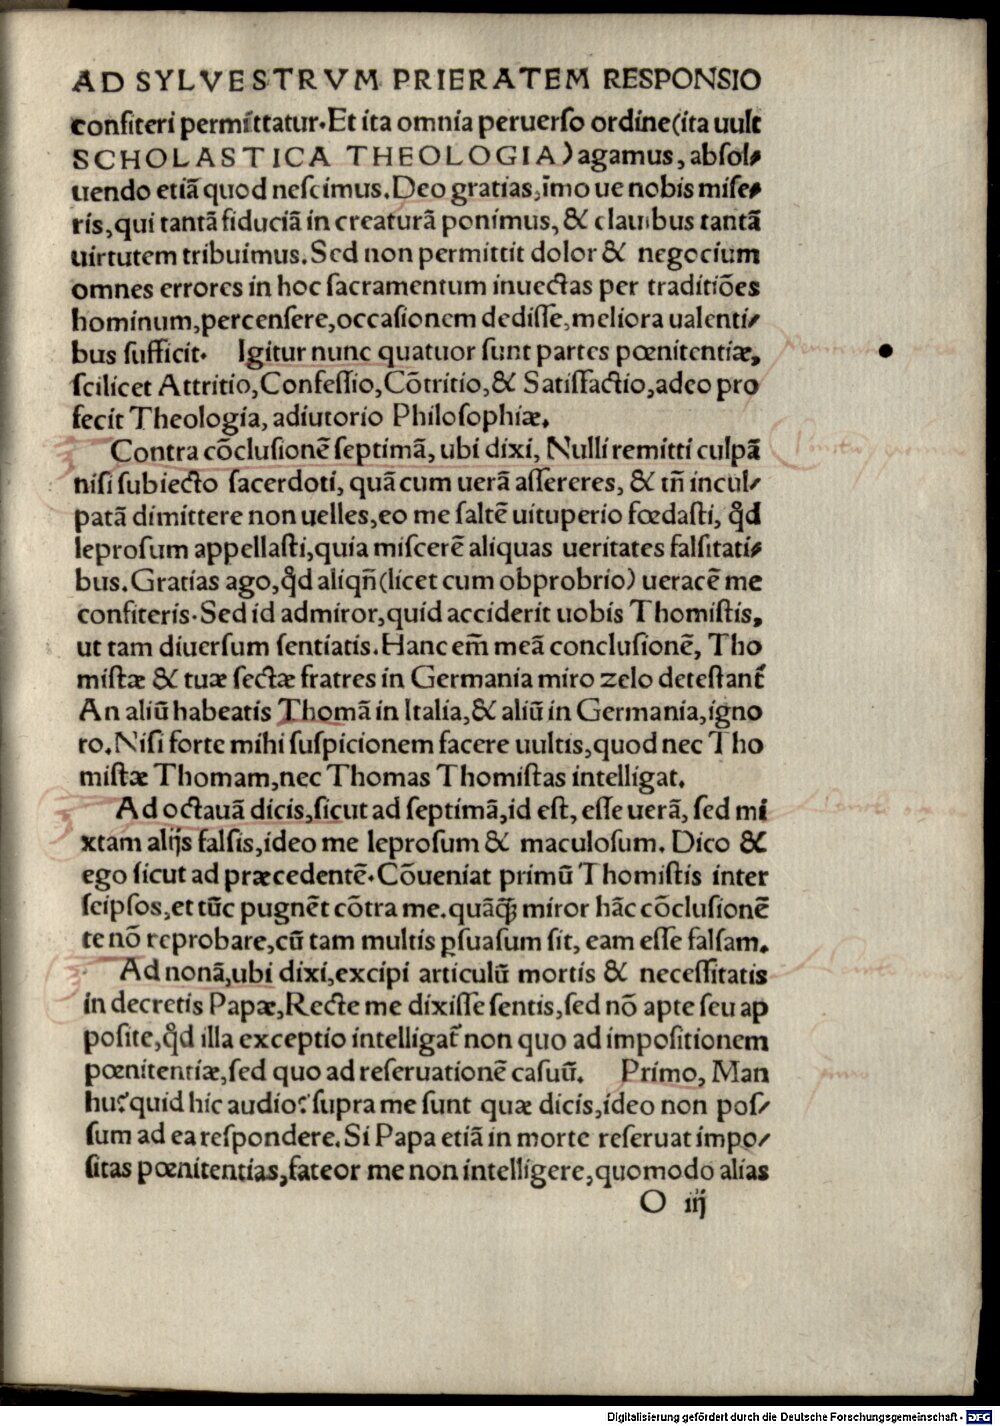 AD SYLVESTRVM PRIERATEM RESPONSIO
confiteri permittatur. Et ita omnia peruerso ordine (ita uult
SCHOLASTICA THEOLOGIA) agamus, absol-
uendo etiā quod nescimus. Deo gratias, īmo ue nobis mise-
ris, qui tantā fiduciā in creaturā ponimus, & clauibus tantā
uirtutem tribuimus. Sed non permittit dolor & negocium
omnes errores in hoc sacramentum inuectas per traditiōes
hominum, percensere, occasionem dedisse, meliora ualenti-
bus sufficit. Igitur nunc quatuor sunt partes pœnitentiæ,
scilicet Attritio, Confessio, Cōtritio, & Satisfactio, adeo pro
fecit Theologia, adiutorio Philosophiæ.
Contra cōclusionē septimā, ubi dixi, Nulli remitti culpā
nisi subiecto sacerdoti, quā cum uerā assereres, & tñ incul-
patā dimittere non uelles, eo me saltē uituperio fœdasti, ꝙd
leprosum appellasti, quia miscerē aliquas ueritates falsitati-
bus. Gratias ago, ꝙd aliqñ (licet cum obprobrio) ueracē me
confiteris. Sed id admiror, quid acciderit uobis Thomistis,
ut tam diuersum sentiatis. Hanc em̄ meā conclusionē, Tho
mistæ & tuæ sectæ fratres in Germania miro zelo detestant᷑
An aliū habeatis Thomā in Italia, & aliū in Germania, igno
ro. Nisi forte mihi suspicionem facere uultis, quod nec Tho
mistæ Thomam, nec Thomas Thomistas intelligat.
Ad octauā dicis, sicut ad septimā, id est, esse uerā, sed mi
xtam alijs falsis, ideo me leprosum & maculosum. Dico &
ego sicut ad præcedentē. Cōueniat primū Thomistis inter
seipsos, et tūc pugnēt cōtra me. quāꝙ̄ miror hāc cōclusionē
te nō reprobare, cū tam multis ꝑsuasum sit, eam esse falsam.
Ad nonā, ubi dixi, excipi articulū mortis & necessitatis
in decretis Papæ, Recte me dixisse sentis, sed nō apte seu ap
posite, ꝙd illa exceptio intelligat᷑ non quo ad impositionem
pœnitentiæ, sed quo ad reseruationē casuū. Primo, Man
hu? quid hic audio? supra me sunt quæ dicis, ideo non pos-
sum ad ea respondere. Si Papa etiā in morte reseruat impo-
sitas pœnitentias, fateor me non intelligere, quomodo alias
O iij
Digitalisierung gefördert durch die Deutsche Forschungsgemeinschaft - DFG